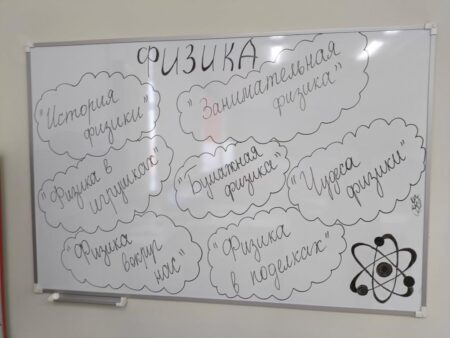 ФИЗИКА
"История
физики"
"Занимательная
физика"
"Физика в
игрушках"
"Бумажная
физика"
"Чудеса
физики"
"Физика
вокруг
нас"
"Физика
в поделках"